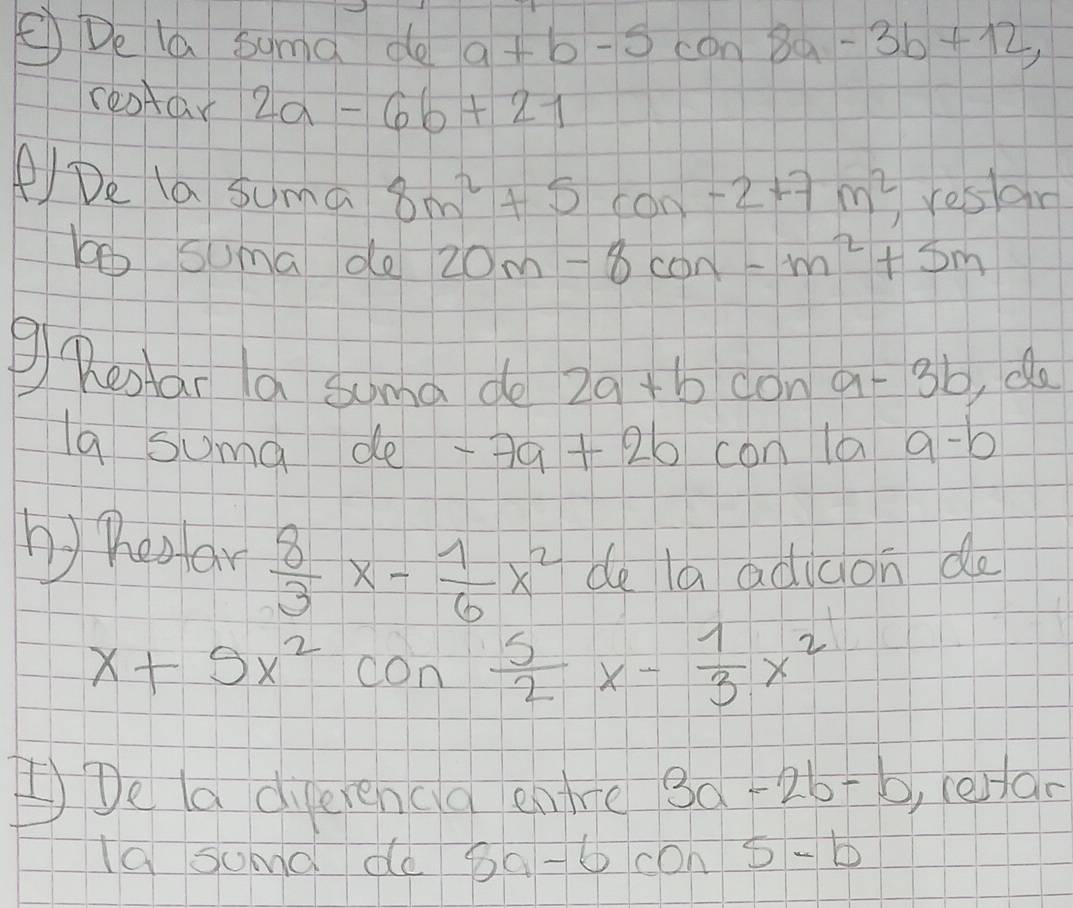 E) De la suma de a + b - 5 con 8a - 3b + 12,
restar 2a - 6b + 21
f) De la suma 8m² + 5 con -2+7 m², restar
la suma de 20m - 8 con - m² + 5m
g) Restar la suma de 2a + b con a - 3b, de
la suma de -7a + 2b con la a-b
h) Restar 8/3 x - 1/6 x² de la adición de
x + 5x² con 5/2 x - 1/3 x²
I) De la diferencia entre 3a - 2b - b, restar
la suma de 8a - 6 con 5 - b